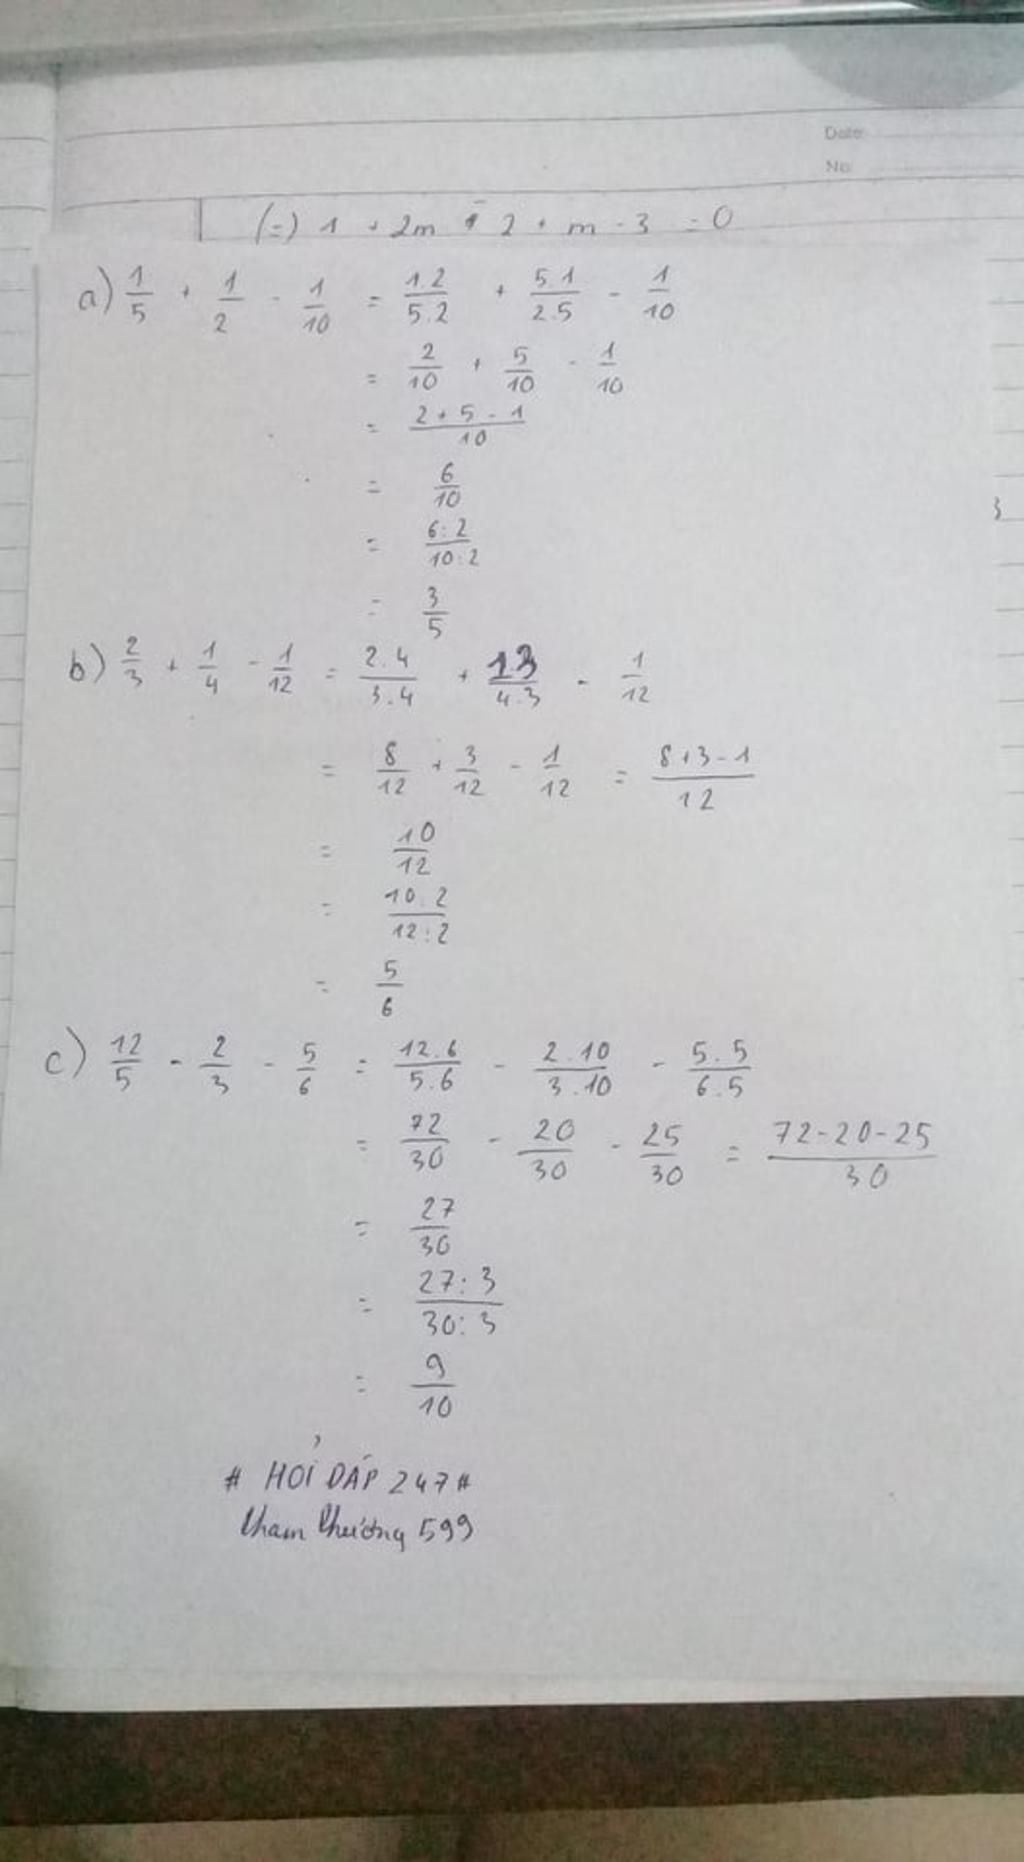 Date:
No:
(=) 1 + 2m - 2 + m - 3 = 0
a) 1/5 + 1/2 - 1/10 = 1.2/5.2 + 5.1/2.5 - 1/10
= 2/10 + 5/10 - 1/10
= 2+5-1/10
= 6/10
= 6:2/10:2
= 3/5
b) 2/3 + 1/4 - 1/12 = 2.4/3.4 + 1.3/4.3 - 1/12
= 8/12 + 3/12 - 1/12 = 8+3-1/12
= 10/12
= 10:2/12:2
= 5/6
c) 12/5 - 2/3 - 5/6 = 12.6/5.6 - 2.10/3.10 - 5.5/6.5
= 72/30 - 20/30 - 25/30 = 72-20-25/30
= 27/30
= 27:3/30:3
= 9/10
# HỎI ĐÁP 247#
599